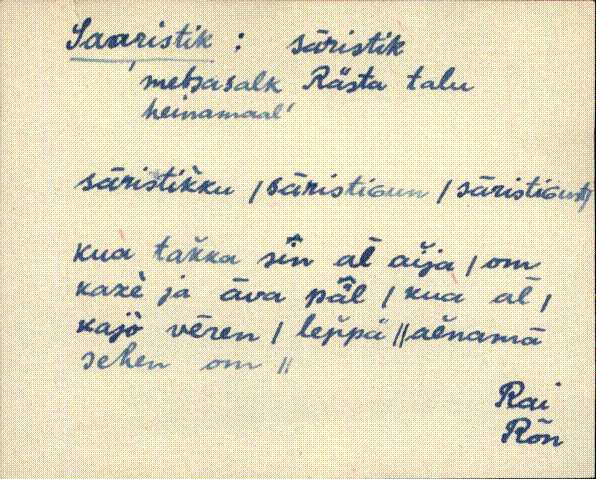 Saaristik : sāristik
'metsasalk Rästa talu
heinamaal'
sāristikku / sāristiGun / sāristiGust /
kua takka sīn al aija / om
kazè ja āva pǟl / kua al /
kajò vēren / leppä // aenamā
sehen om //
Rai
Rõn